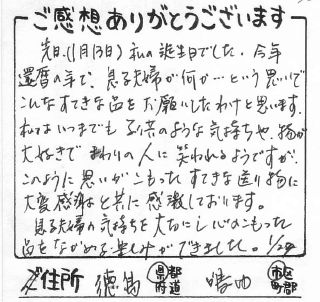 ご感想ありがとうございます
先日(1月13日)私の誕生日でした。今年
還暦の年で、息子夫婦が何か…という思いで
こんなすてきな品をお願いしたわけと思います。
私はいつまでも子供のような気持ちや、物が
大好きで まわりの人に 笑われるようですが、
このように 思いがこもった すてきな送り物に
大変感謝と共に 感激しております。
息子夫婦の気持ちを大切にし 心のこもった
品をながめる楽しみができました。1/29
ご住所 徳島 都道府県 市区町郡